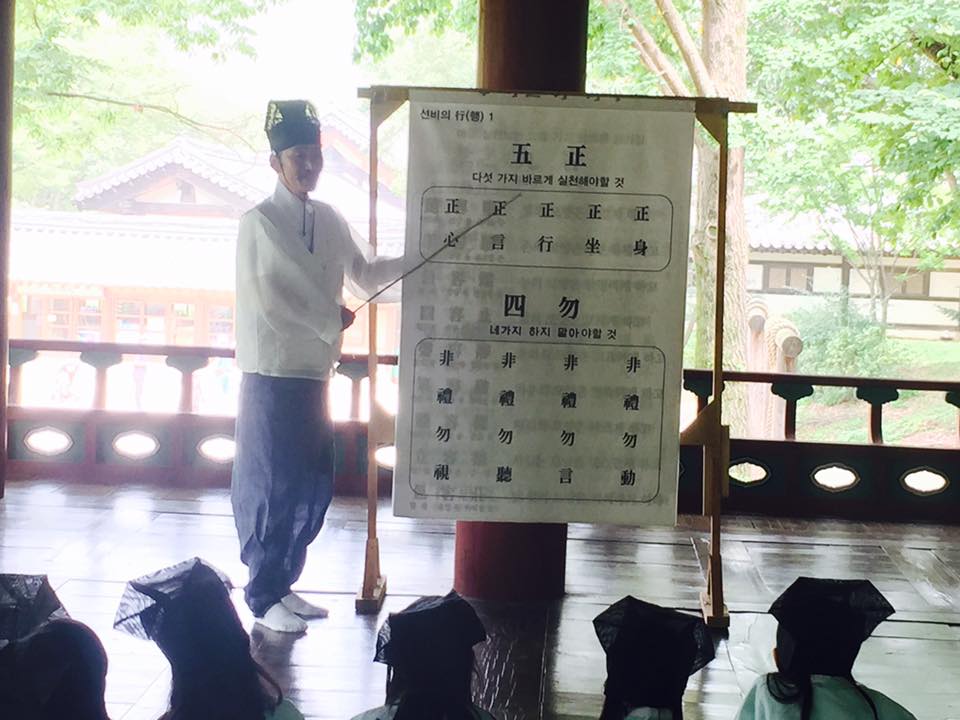 선비의 行(行) 1
五 正
다섯 가지 바르게 실천해야할 것
正 正 正 正 正
心 言 行 坐 身
四 勿
네가지 하지 말아야할 것
非 非 非 非
禮 禮 禮 禮
勿 勿 勿 勿
視 聽 言 動